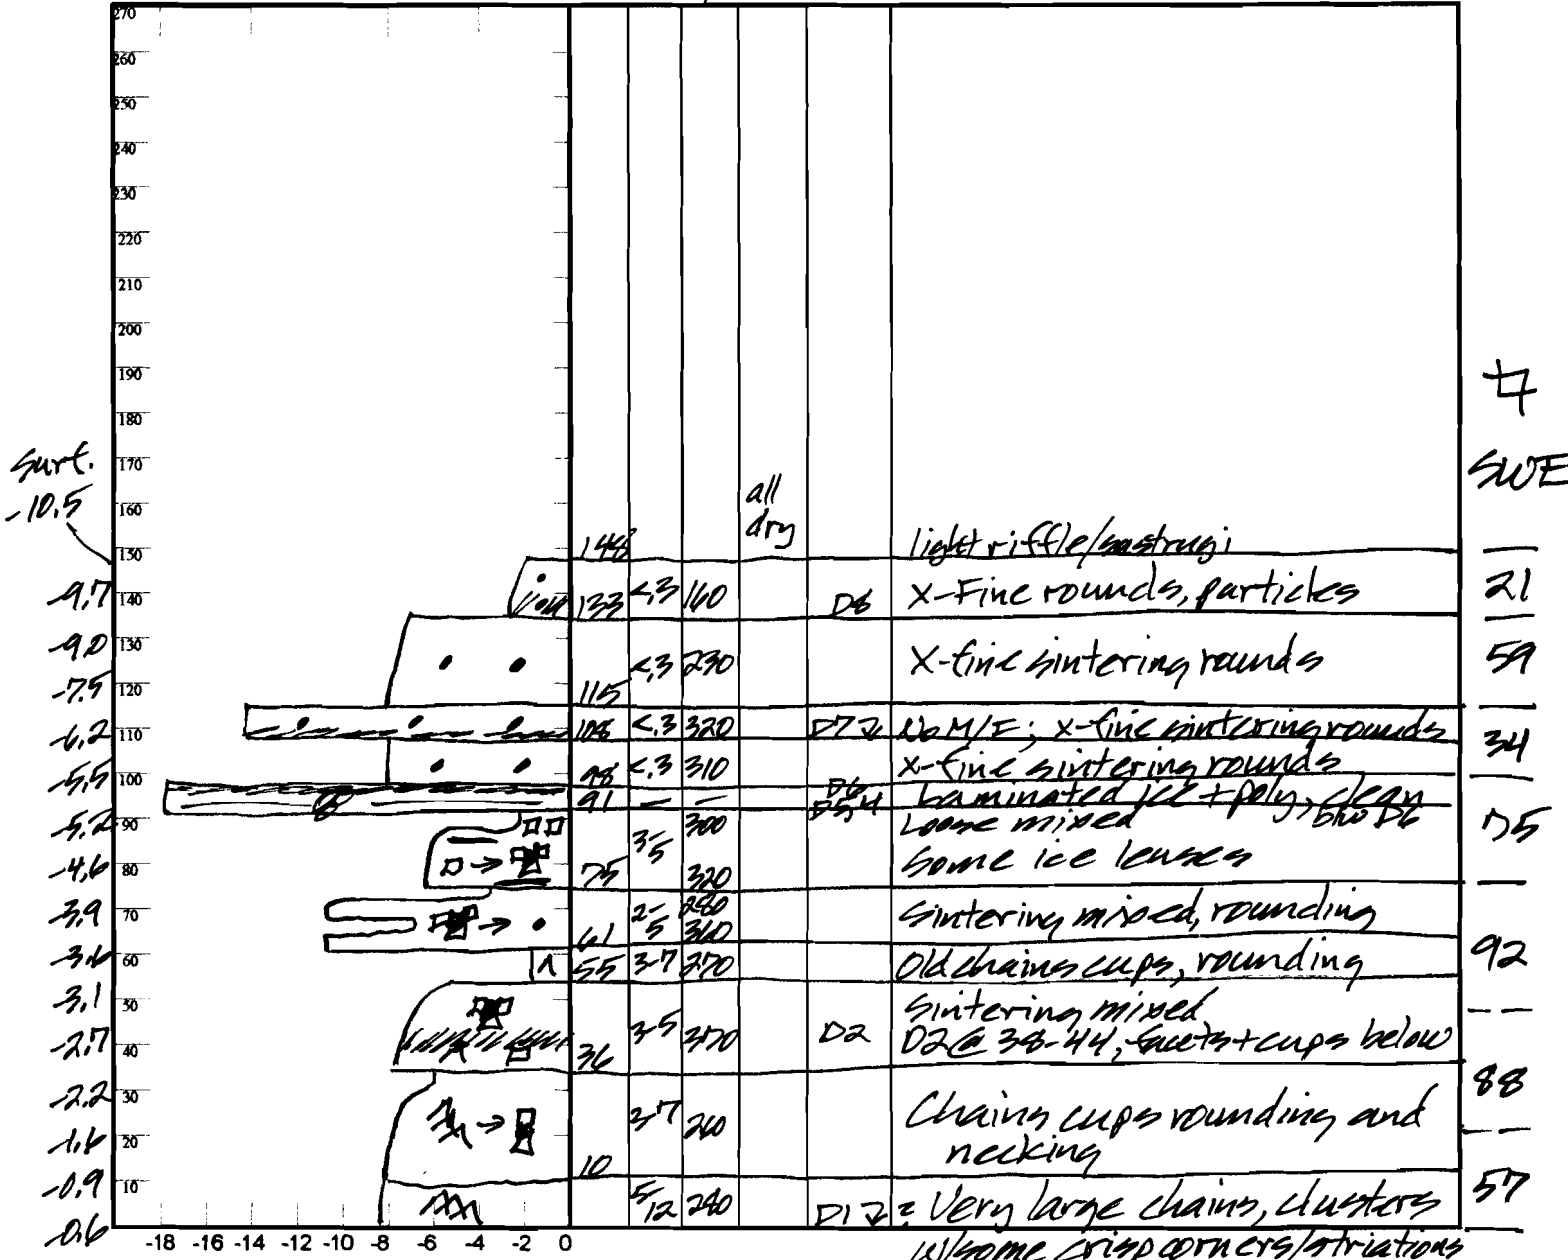 270
260
250
240
230
220
210
200
190
180
170
160
150
140
130
120
110
100
90
80
70
60
50
40
30
20
10
-18 -16 -14 -12 -10 -8 -6 -4 -2 0
surf.
-10.5
-9.7
-9.0
-7.5
-6.2
-5.5
-5.2
-4.6
-3.9
-3.6
-3.1
-2.7
-2.2
-1.6
-0.9
-0.6
all
dry
SWE
148 light riffle/sastrugi
133 <.3 160 D8 X-Fine rounds, particles 21
<.3 230 X-fine sintering rounds 59
115
108 <.3 320 D7 No M/F; x-fine sintering rounds
34
98 <.3 310 x-fine sintering rounds
91 — — D6 Laminated ice + poly, clean
D5,4 blw D6
300 Loose mixed
75
3-5 Some ice lenses
75 320
2-5 280 Sintering mixed, rounding
61 360
55 3-7 270 Old chains cups, rounding 92
Sintering mixed
36 3-5 370 D2 D2 @ 38-44, facets + cups below
88
3-7 260 Chains cups rounding and
necking
10
5/12 280 D1 ? Very large chains, clusters 57
w/some crisp corners/striations